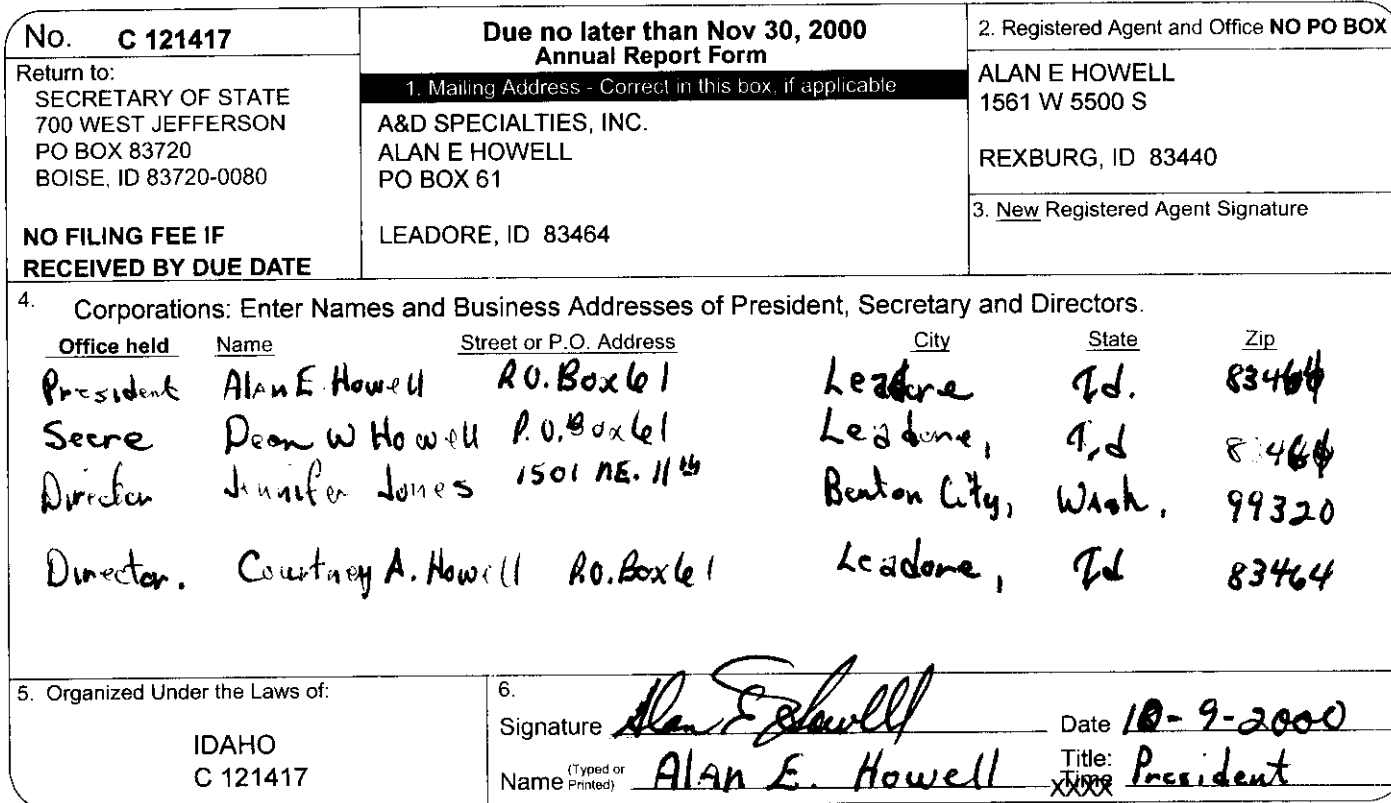 No. C 121417
Return to:
SECRETARY OF STATE
700 WEST JEFFERSON
PO BOX 83720
BOISE, ID 83720-0080
NO FILING FEE IF
RECEIVED BY DUE DATE
Due no later than Nov 30, 2000
Annual Report Form
1. Mailing Address - Correct in this box, if applicable
A&D SPECIALTIES, INC.
ALAN E HOWELL
PO BOX 61
LEADORE, ID 83464
2. Registered Agent and Office NO PO BOX
ALAN E HOWELL
1561 W 5500 S
REXBURG, ID 83440
3. New Registered Agent Signature
4. Corporations: Enter Names and Business Addresses of President, Secretary and Directors.
Office held Name Street or P.O. Address City State Zip
President Alan E. Howell P.O. Box 61 Leadore Id. 83464
Secre Dean W Howell P.O. Box 61 Leadore, Id 83464
Director Jennifer Jones 1501 NE. 11th Benton City, Wash. 99320
Director. Courtney A. Howell P.O. Box 61 Leadore, Id 83464
5. Organized Under the Laws of:
IDAHO
C 121417
6.
Signature Alan E Howell Date 10-9-2000
Name (Typed or Printed) Alan E. Howell Title: President
XXXX